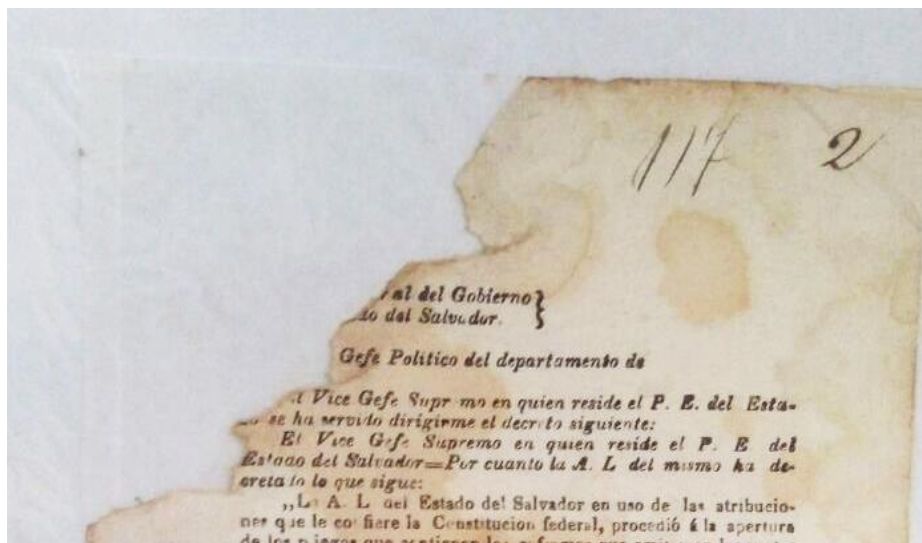 117 2
al del Gobierno}
do del Salvador.
Gefe Politico del departamento de
Vice Gefe Supremo en quien reside el P. E. del Esta-
se ha servido dirigirme el decreto siguiente:
El Vice Gefe Supremo en quien reside el P. E del
Estado del Salvador=Por cuanto la A. L del mismo ha de-
creta lo lo que sigue:
„La A. L del Estado del Salvador en uso de las atribucio-
nes que le confiere la Constitucion federal, procedió á la apertura
de los pliegos que contienen los sufragios que